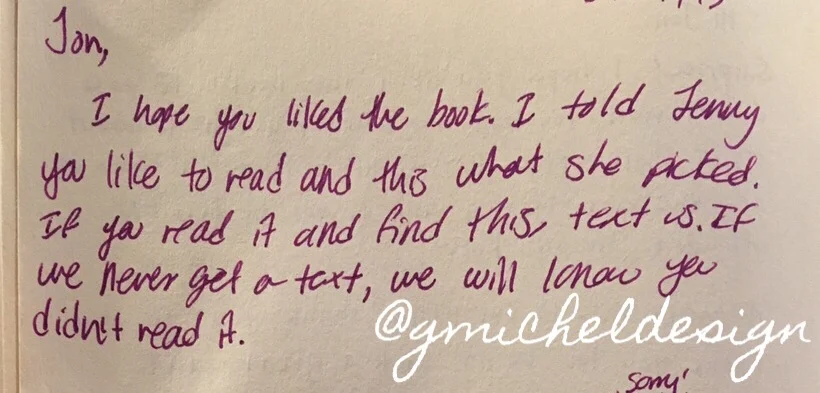 Jon,
I hope you liked the book. I told Jenny
you like to read and this what she picked.
If you read it and find this, text us. If
we never get a text, we will know you
didn't read it.
@gmicheldesign
sorry!